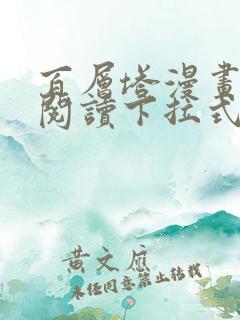 百層塔漫畫
閱讀下拉式
黃文應
未经同意禁止转载